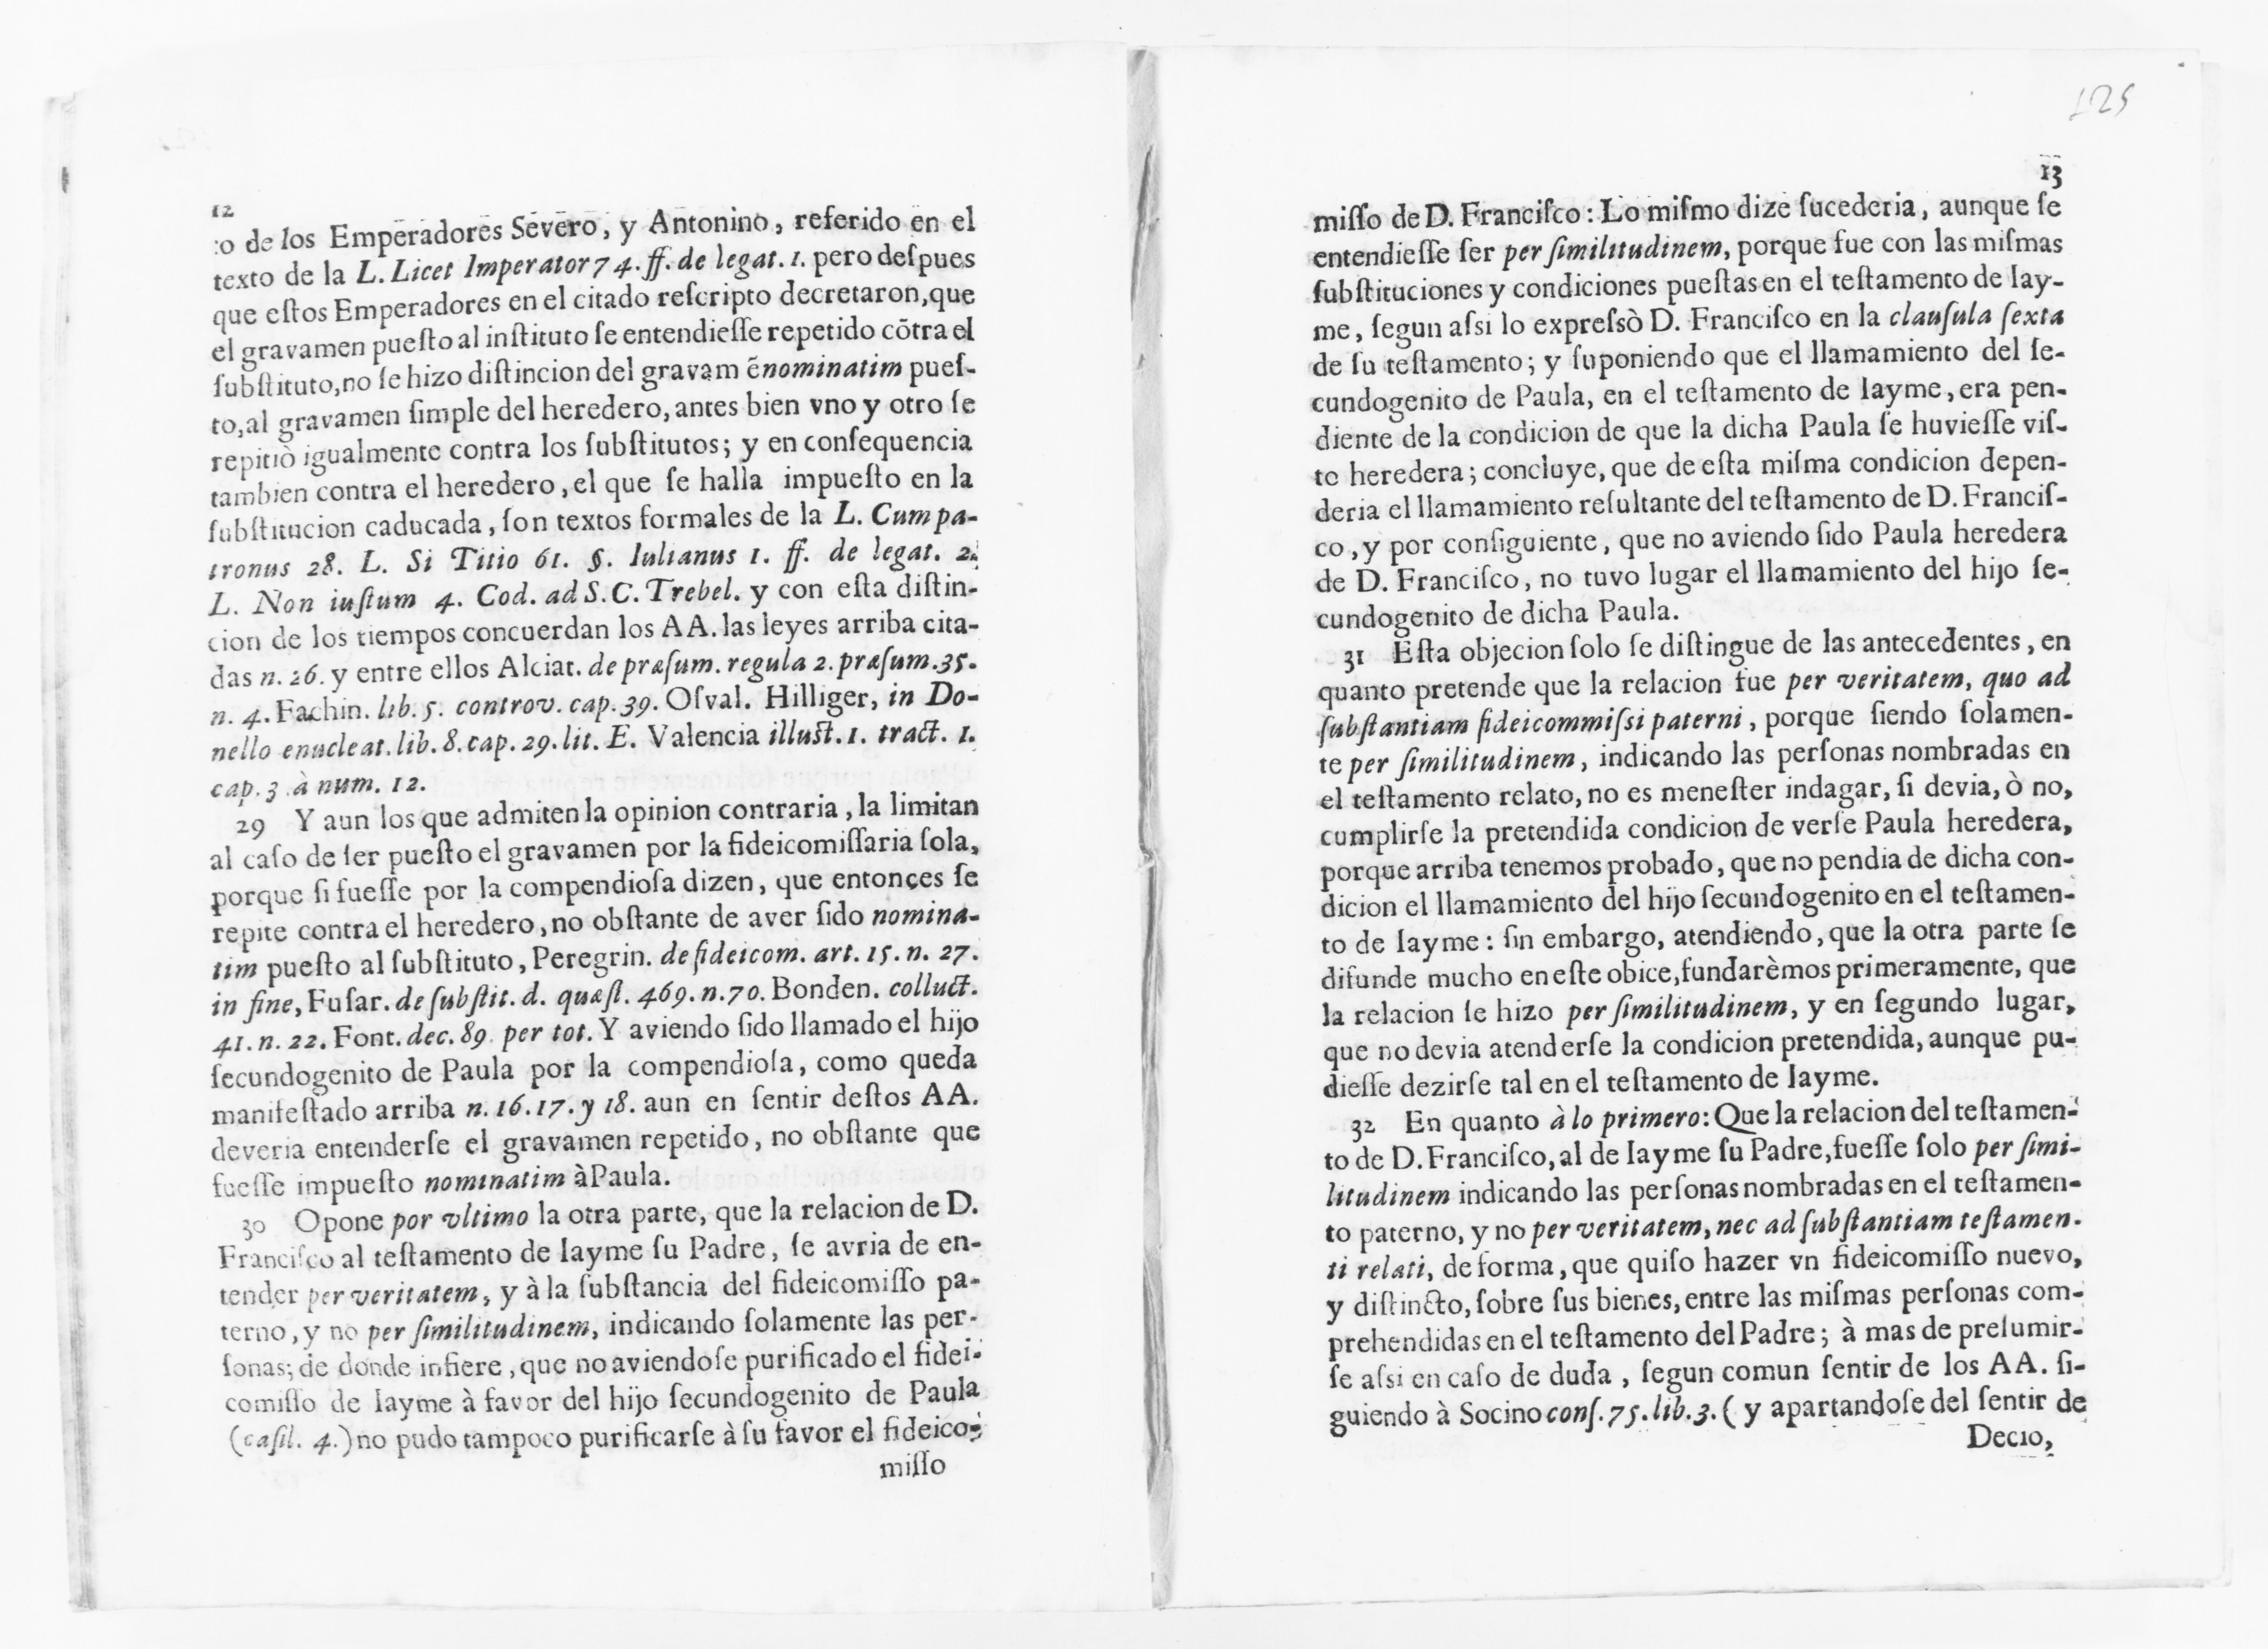 12
:o de los Emperadores Severo, y Antonino, referido en el
texto de la L. Licet Imperator 74. ff. de legat. 1. pero deſpues
que eſtos Emperadores en el citado reſcripto decretaron, que
el gravamen pueſto al inſtituto ſe entendieſſe repetido cõtra el
ſubſtituto, no ſe hizo diſtincion del gravam ẽ nominatim pueſ-
to, al gravamen ſimple del heredero, antes bien vno y otro ſe
repitiò igualmente contra los ſubſtitutos; y en conſequencia
tambien contra el heredero, el que ſe halla impueſto en la
ſubſtitucion caducada, ſon textos formales de la L. Cum pa-
tronus 28. L. Si Titio 61. §. Iulianus 1. ff. de legat. 2.
L. Non iuſtum 4. Cod. ad S. C. Trebel. y con eſta diſtin-
cion de los tiempos concuerdan los AA. las leyes arriba cita-
das n. 26. y entre ellos Alciat. de præſum. regula 2. præſum. 35.
n. 4. Fachin. lib. 5. controv. cap. 39. Oſval. Hilliger, in Do-
nello enucleat. lib. 8. cap. 29. lit. E. Valencia illuſt. 1. tract. 1.
cap. 3 à num. 12.
29 Y aun los que admiten la opinion contraria, la limitan
al caſo de ſer pueſto el gravamen por la fideicomiſſaria ſola,
porque ſi fueſſe por la compendioſa dizen, que entonces ſe
repite contra el heredero, no obſtante de aver ſido nomina-
tim pueſto al ſubſtituto, Peregrin. de fideicom. art. 15. n. 27.
in fine, Fuſar. de ſubſtit. d. quæſt. 469. n. 70. Bonden. colluct.
41. n. 22. Font. dec. 89. per tot. Y aviendo ſido llamado el hijo
ſecundogenito de Paula por la compendioſa, como queda
manifeſtado arriba n. 16. 17. y 18. aun en ſentir deſtos AA.
deveria entenderſe el gravamen repetido, no obſtante que
fueſſe impueſto nominatim à Paula.
30 Opone por vltimo la otra parte, que la relacion de D.
Franciſco al teſtamento de Iayme ſu Padre, ſe avria de en-
tender per veritatem, y à la ſubſtancia del fideicomiſſo pa-
terno, y no per ſimilitudinem, indicando ſolamente las per-
ſonas; de donde infiere, que no aviendoſe purificado el fidei-
comiſſo de Iayme à favor del hijo ſecundogenito de Paula
(caſil. 4.) no pudo tampoco purificarſe à ſu favor el fideico-
miſſo
125
13
miſſo de D. Franciſco: Lo miſmo dize ſucederia, aunque ſe
entendieſſe ſer per ſimilitudinem, porque fue con las miſmas
ſubſtituciones y condiciones pueſtas en el teſtamento de Iay-
me, ſegun aſsi lo expreſsò D. Franciſco en la clauſula ſexta
de ſu teſtamento; y ſuponiendo que el llamamiento del ſe-
cundogenito de Paula, en el teſtamento de Iayme, era pen-
diente de la condicion de que la dicha Paula ſe huvieſſe viſ-
to heredera; concluye, que de eſta miſma condicion depen-
deria el llamamiento reſultante del teſtamento de D. Franciſ-
co, y por conſiguiente, que no aviendo ſido Paula heredera
de D. Franciſco, no tuvo lugar el llamamiento del hijo ſe-
cundogenito de dicha Paula.
31 Eſta objecion ſolo ſe diſtingue de las antecedentes, en
quanto pretende que la relacion fue per veritatem, quo ad
ſubſtantiam fideicommiſsi paterni, porque ſiendo ſolamen-
te per ſimilitudinem, indicando las perſonas nombradas en
el teſtamento relato, no es meneſter indagar, ſi devia, ò no,
cumplirſe la pretendida condicion de verſe Paula heredera,
porque arriba tenemos probado, que no pendia de dicha con-
dicion el llamamiento del hijo ſecundogenito en el teſtamen-
to de Iayme: ſin embargo, atendiendo, que la otra parte ſe
difunde mucho en eſte obice, fundarèmos primeramente, que
la relacion ſe hizo per ſimilitudinem, y en ſegundo lugar,
que no devia atenderſe la condicion pretendida, aunque pu-
dieſſe dezirſe tal en el teſtamento de Iayme.
32 En quanto à lo primero: Que la relacion del teſtamen-
to de D. Franciſco, al de Iayme ſu Padre, fueſſe ſolo per ſimi-
litudinem indicando las perſonas nombradas en el teſtamen-
to paterno, y no per veritatem, nec ad ſubſtantiam teſtamen-
ti relati, de forma, que quiſo hazer vn fideicomiſſo nuevo,
y diſtincto, ſobre ſus bienes, entre las miſmas perſonas com-
prehendidas en el teſtamento del Padre; à mas de preſumir-
ſe aſsi en caſo de duda, ſegun comun ſentir de los AA. ſi-
guiendo à Socino conſ. 75. lib. 3. (y apartandoſe del ſentir de
Decio,